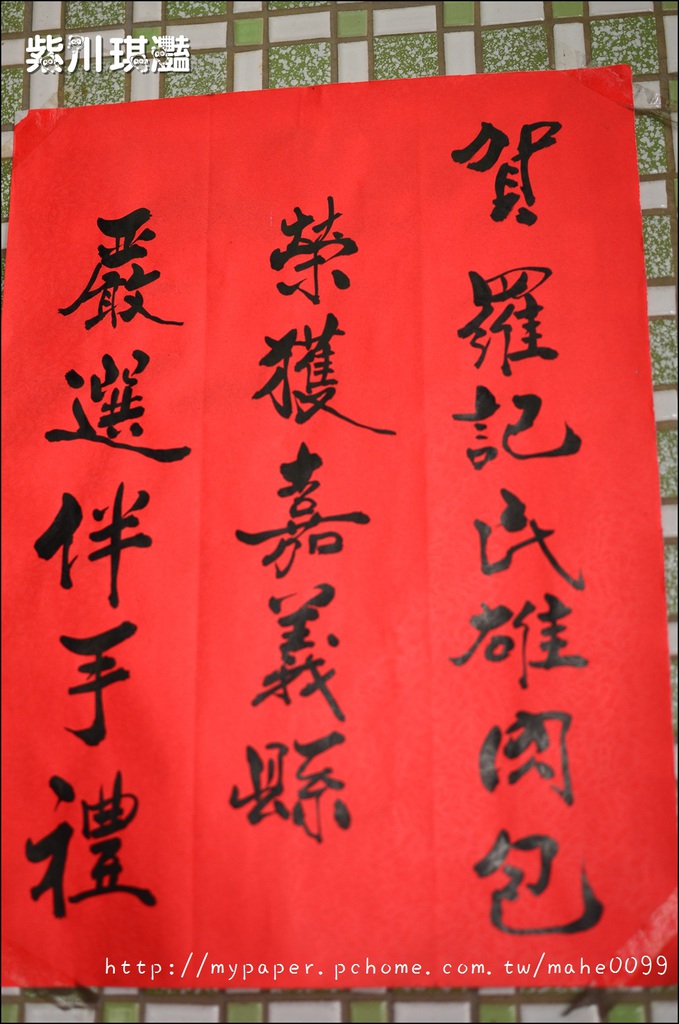 紫川琪灩
賀羅記民雄肉包
榮獲嘉義縣
嚴選伴手禮
http://mypaper.pchome.com.tw/mahe0099